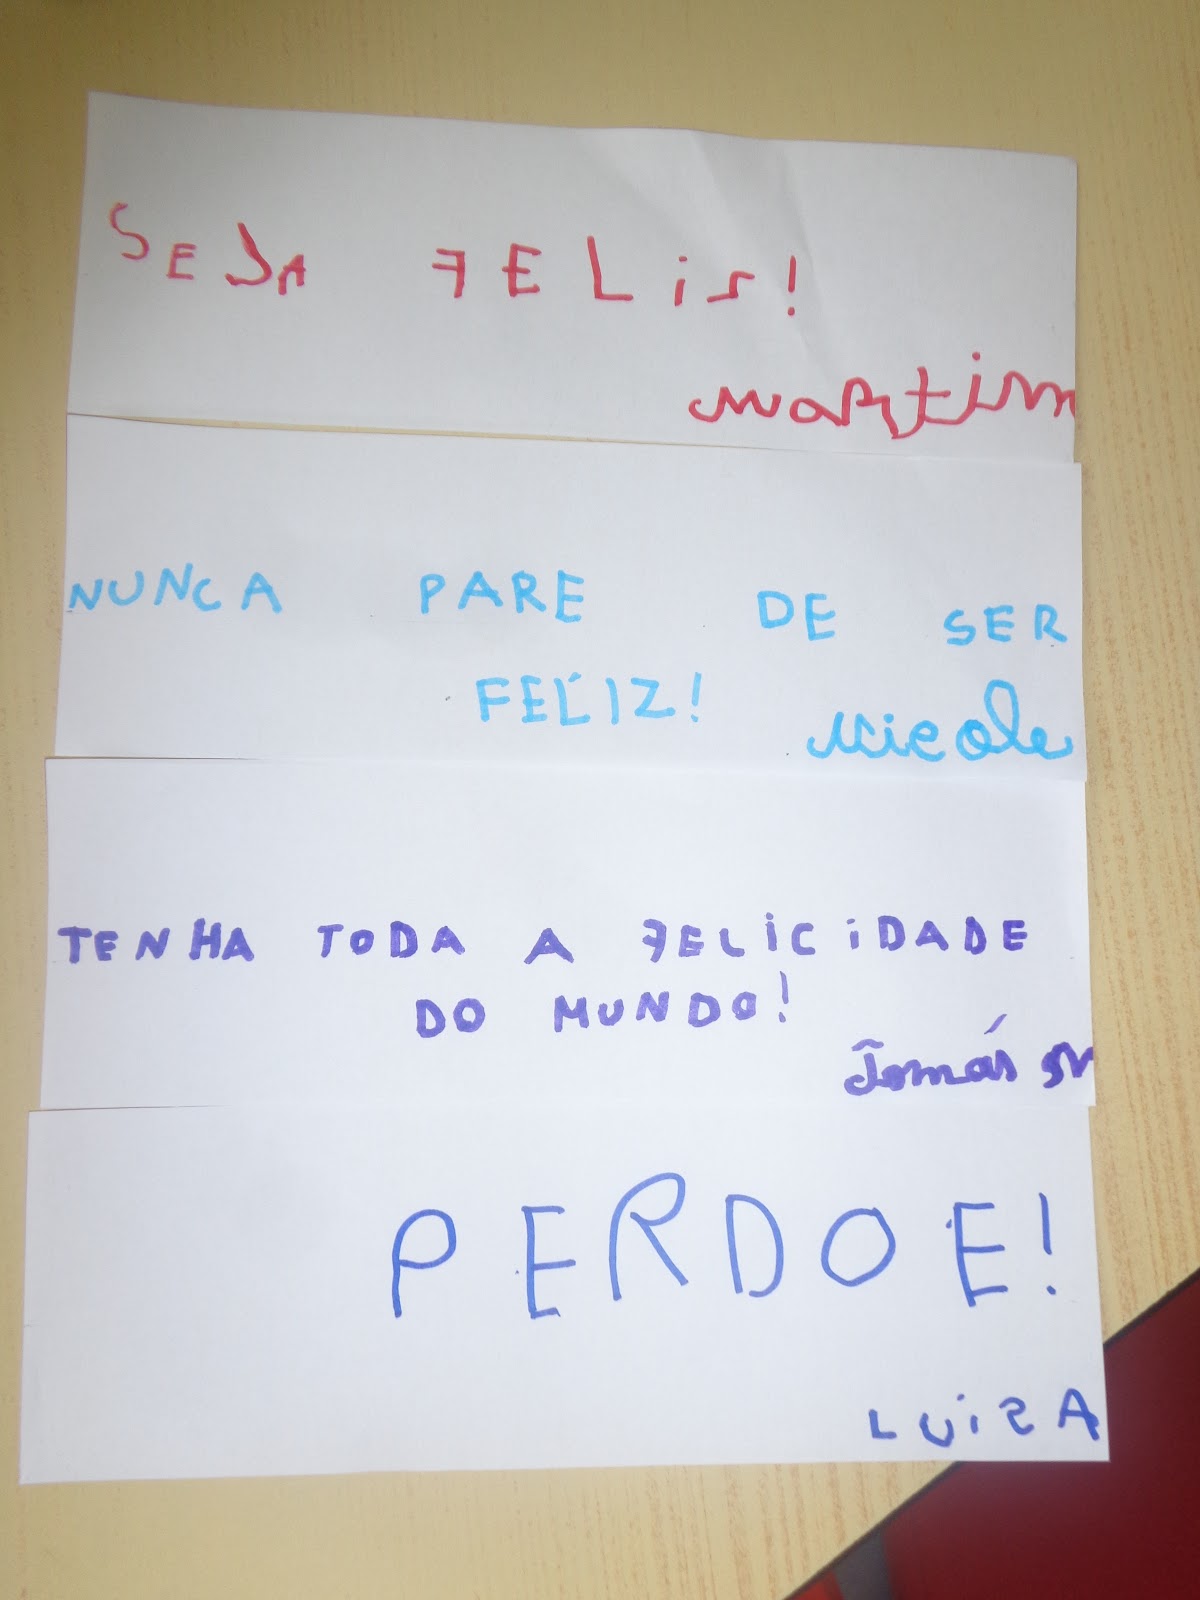 SEJA FELiS!
Martim
NUNCA PARE DE SER
FELIZ! Nicole
TENHA TODA A FELiCiDADE
DO MUNDO!
Tomás M
PERDOE!
LUiZA